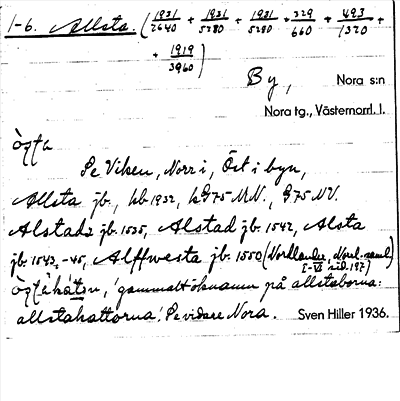 1-6. Allsta. (1931/2640 + 1931/5280 + 1931/5280 + 329/660 + 493/1320 +
+ 1919/3960)
By, Nora s:n
Nora tg., Västernorrl. l.
Se Viken, Norr i, Öst i byn,
Allsta jb., kb 1932, kG75 M.N., G75 NV.
Alstads jb. 1535, Alstad jb. 1542, Alsta
jb. 1543, -45, Alffwesta jb. 1550 (Nordlander, Norrl. saml.
I-VI sid. 197)
'gammalt öknamn på allstaborna:
allstahattorna'. Se vidare Nora. Sven Hiller 1936.